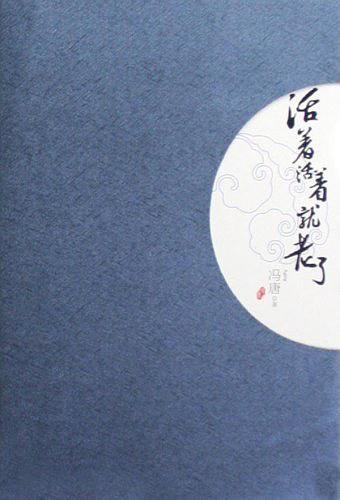 活着活着就老了
冯唐